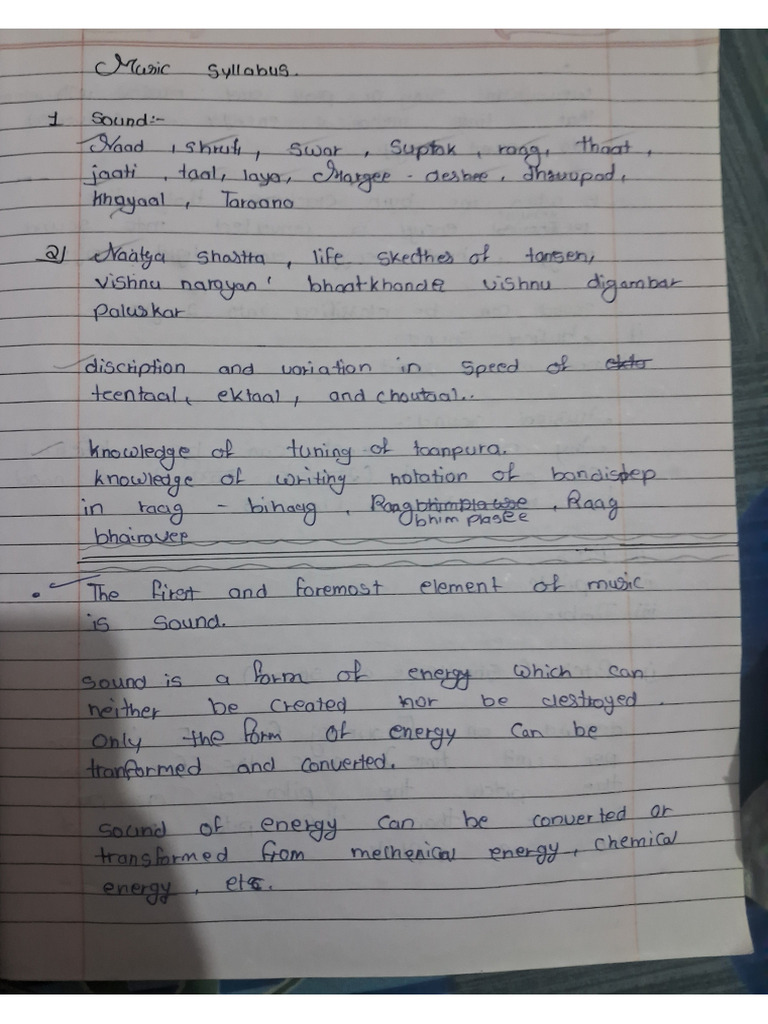 Music Syllabus.
1 Sound:-
Naad, shruti, swar, Suptak, raag, thaat,
jaati, taal, laya, Margee - deshee, dhruupad,
khayaal, Taroona
2) Naatya shastta, life skecthes of tansen,
vishnu narayan' bhaatkhande vishnu digambar
paluskar
discription and variation in speed of
teentaal, ektaal, and choutaal..
knowledge of tuning of taanpura.
knowledge of writing notation of bandishep
in raag - bihaag, Raag bhimplasee, Raag
bhairavee
The first and foremost element of music
is sound.
sound is a form of energy which can
neither be created nor be destroyed.
only the form of energy can be
tranformed and converted.
sound of energy can be converted or
transformed from mechenical energy, chemical
energy, etc.